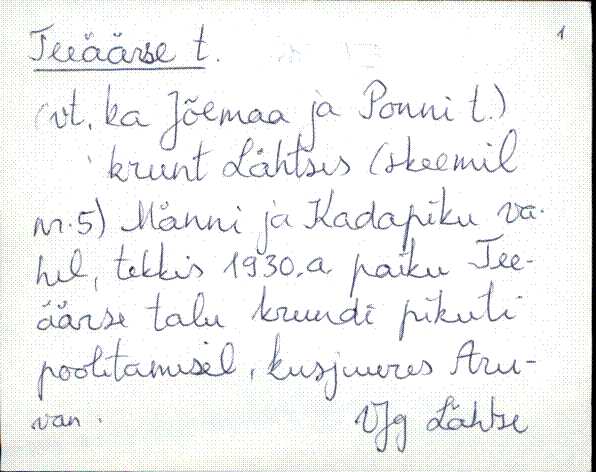 Teeäärse t. 1
(vt. ka Jõemaa ja Ponni t.)
krunt Lähtses (skeemil
nr. 5) Männi ja Kadapiku va-
hel, tekkis 1930. a. paiku Tee-
äärse talu krundi pikuti
poolitamisel, kusjuures Aru-
van. VJg Lähtse